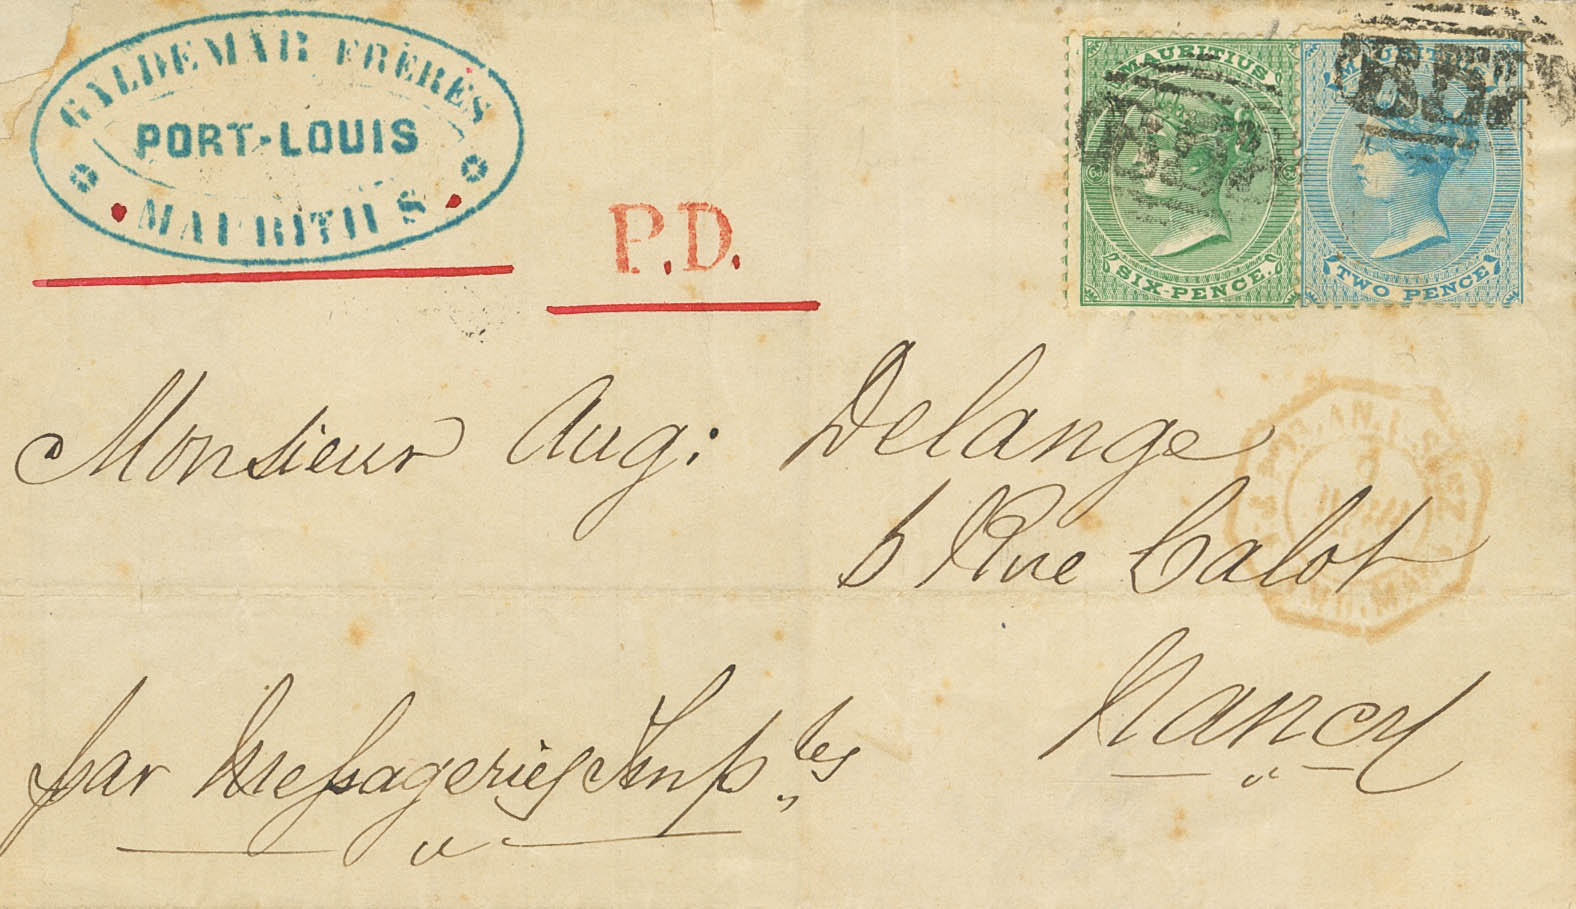 GALDEMAR FRÈRES
PORT-LOUIS
MAURITIUS
P.D.
MAURITIUS
SIX-PENCE.
MAURITIUS
TWO PENCE
B53
Monsieur Aug: Delange
6 Rue Callot
Nancy
par Messageries Imp.les